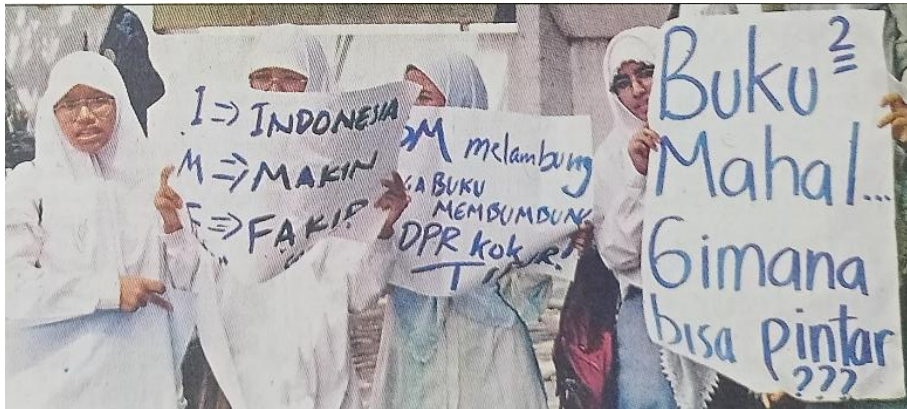 I => INDONESIA
M => MAKIN
F => FAKIR
BM melambung
GA BUKU
MEMBUMBUNG
DPR kok
Buku²
Mahal...
Gimana
bisa pintar
???